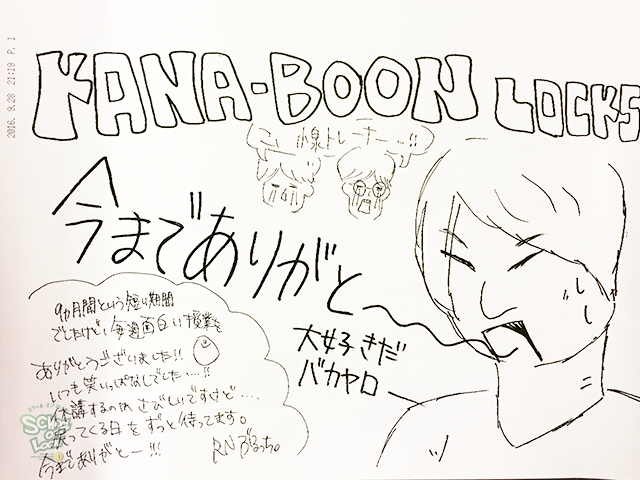 2016. 9.28 21:19 P. 1
KANA-BOON LOCKS
こ、小泉トレーナー…!!
今までありがとー
大好きだ
バカヤロ
9ヵ月間という短い期間
でしたけど、毎週面白い授業を
ありがとうございました!!
いつも笑いっぱなしでした…!!
休講するのは さびしいですけど…
戻ってくる日をずっと待ってます。
今までありがとー!!!
RN ぶるっち。
SCHOOL OF LOCK!